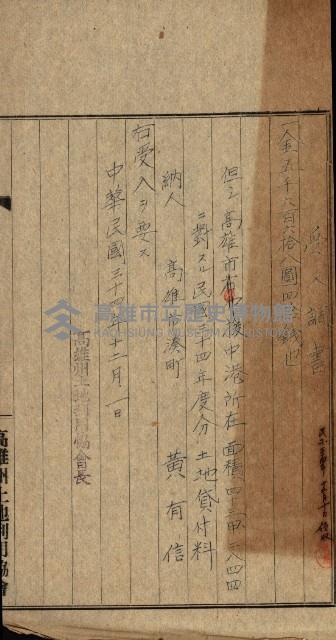 請書
一金五千六百六拾八圓四拾錢也
但シ高雄市前中後中港所在面積四三甲二八四四
ニ對スル民國三十四年度分土地貸付料
納人 高雄市湊町 黃有信
右受入ヲ要ス
中華民國三十四年十二月一日
高雄州土地利用協會長
高雄州土地利用協會
高雄市立歷史博物館
KAOHSIUNG MUSEUM OF HISTORY